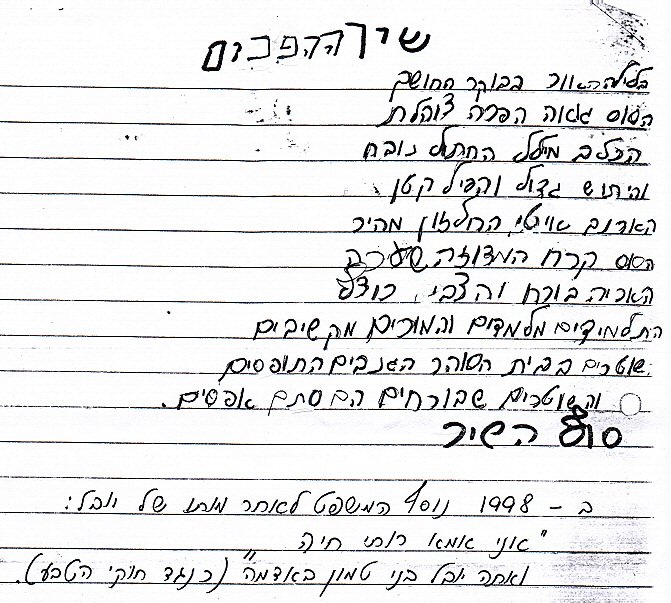 שיר ההפכים
בלילה האור בבוקר החושך
הסוס גאה הפרה צוהלת
הכלב מילל החתול נובח
והיתוש גדול והפיל קטן
הארנב איטי החלזון מהיר
הסוס קרח המדוזה שעירה
האריה בורח והצבי רודף
התלמידים מלמדים והמורים מקשיבים
שוטרים בבית הסוהר הגנבים התופסים
והשוטרים שבורחים הם סתם אפסים.
סוף השיר
ב - 1998 נוסף המשפט לאחר מותו של יובל:
"אני אמא רותי חיה
ואתה יובל בני טמון באדמה" (כנגד חוקי הטבע).